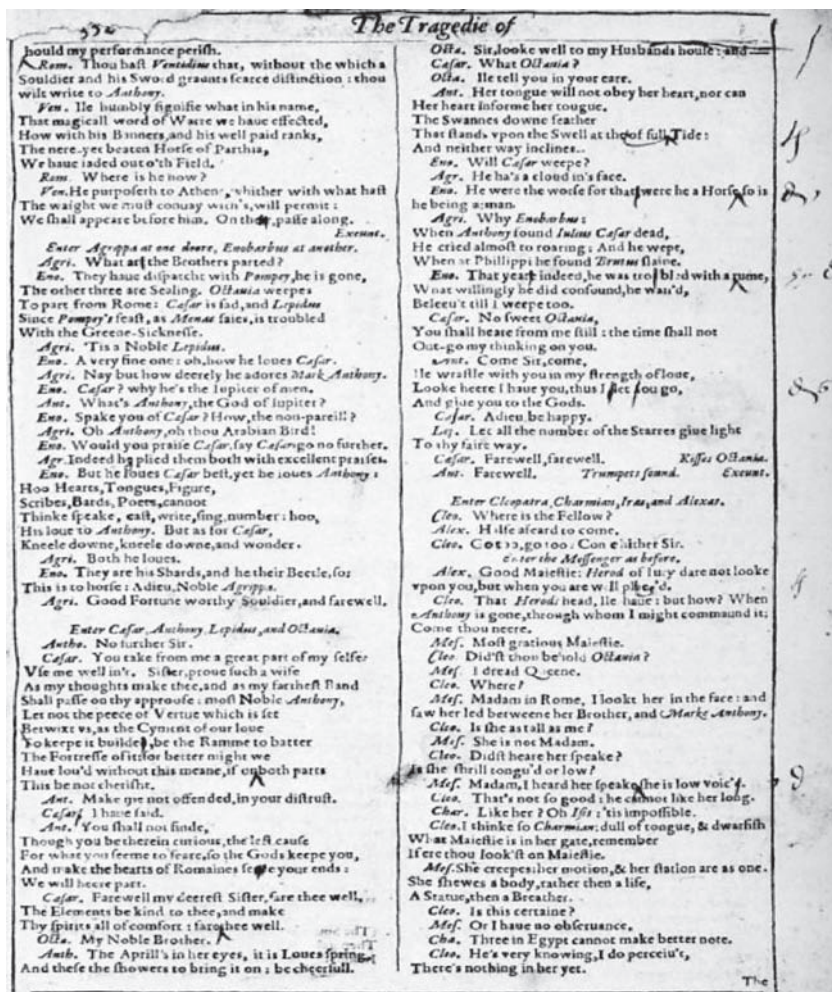 The Tragedie of
hould my performance perish.
Rom. Thou hast Ventidius that, without the which a
Souldier and his Sword graunts scarce distinction: thou
wilt write to Anthony.
Ven. Ile humbly signifie what in his name,
That magicall word of Warre we haue effected,
How with his Banners, and his well paid ranks,
The nere-yet beaten Horse of Parthia,
We haue iaded out o'th Field.
Rom. Where is he now?
Ven. He purposeth to Athens, whither with what hast
The waight we must conuay with's, will permit:
We shall appeare before him. On there, passe along.
Exeunt.
Enter Agrippa at one doore, Enobarbus at another.
Agri. What are the Brothers parted?
Eno. They haue dispatcht with Pompey, he is gone,
The other three are Sealing. Octauia weepes
To part from Rome: Cæsar is sad, and Lepidus
Since Pompey's feast, as Menas saies, is troubled
With the Greene-Sicknesse.
Agri. 'Tis a Noble Lepidus.
Eno. A very fine one: oh, how he loues Cæsar.
Agri. Nay but how deerely he adores Mark Anthony.
Eno. Cæsar? why he's the Iupiter of men.
Ant. What's Anthony, the God of Iupiter?
Eno. Spake you of Cæsar? How, the non-pareill?
Agri. Oh Anthony, oh thou Arabian Bird!
Eno. Would you praise Cæsar, say Cæsar go no further.
Agr. Indeed he plied them both with excellent praises.
Eno. But he loues Cæsar best, yet he loues Anthony:
Hoo Hearts, Tongues, Figure,
Scribes, Bards, Poets, cannot
Thinke speake, cast, write, sing, number: hoo,
His loue to Anthony. But as for Cæsar,
Kneele downe, kneele downe, and wonder.
Agri. Both he loues.
Eno. They are his Shards, and he their Beetle, so:
This is to horse: Adieu, Noble Agrippa.
Agri. Good Fortune worthy Souldier, and farewell.
Enter Cæsar, Anthony, Lepidus, and Octauia.
Antho. No further Sir.
Cæsar. You take from me a great part of my selfe:
Vse me well in't. Sister, proue such a wife
As my thoughts make thee, and as my farthest Band
Shall passe on thy approofe: most Noble Anthony,
Let not the peece of Vertue which is set
Betwixt vs, as the Cyment of our loue
To keepe it builded, be the Ramme to batter
The Fortresse of it: for better might we
Haue lou'd without this meane, if on both parts
This be not cherisht.
Ant. Make me not offended, in your distrust.
Cæsar. I haue said.
Ant. You shall not finde,
Though you be therein curious, the lest cause
For what you seeme to feare, so the Gods keepe you,
And make the hearts of Romaines serue your ends:
We will heere part.
Cæsar. Farewell my deerest Sister, fare thee well,
The Elements be kind to thee, and make
Thy spirits all of comfort: fare thee well.
Octa. My Noble Brother.
Anth. The Aprill's in her eyes, it is Loues spring,
And these the showers to bring it on: be cheerfull.
Octa. Sir, looke well to my Husbands house: and
Cæsar. What Octauia?
Octa. Ile tell you in your eare.
Ant. Her tongue will not obey her heart, nor can
Her heart informe her tougue.
The Swannes downe feather
That stands vpon the Swell at the of full Tide:
And neither way inclines.
Eno. Will Cæsar weepe?
Agr. He ha's a cloud in's face.
Eno. He were the worse for that were he a Horse so is
he being a man.
Agri. Why Enobarbus:
When Anthony found Iulius Cæsar dead,
He cried almost to roaring: And he wept,
When at Phillippi he found Brutus slaine.
Eno. That year indeed, he was trobled with a rume,
What willingly he did confound, he wail'd,
Beleeu't till I weepe too.
Cæsar. No sweet Octauia,
You shall heare from me still: the time shall not
Out-go my thinking on you.
Ant. Come Sir, come,
Ile wrastle with you in my strength of loue,
Looke heere I haue you, thus I let you go,
And giue you to the Gods.
Cæsar. Adieu, be happy.
Lep. Let all the number of the Starres giue light
To thy faire way.
Cæsar. Farewell, farewell. Kisses Octauia.
Ant. Farewell. Trumpets sound. Exeunt.
Enter Cleopatra, Charmian, Iras, and Alexas.
Cleo. Where is the Fellow?
Alex. Halfe afeard to come.
Cleo. Go too, go too: Come hither Sir.
Enter the Messenger as before.
Alex. Good Maiestie: Herod of Iury dare not looke
vpon you, but when you are well pleas'd.
Cleo. That Herods head, Ile haue: but how? When
Anthony is gone, through whom I might commaund it:
Come thou neere.
Mes. Most gratious Maiestie.
Cleo. Did'st thou behold Octauia?
Mes. I dread Queene.
Cleo. Where?
Mes. Madam in Rome, I lookt her in the face: and
saw her led betweene her Brother, and Marke Anthony.
Cleo. Is she as tall as me?
Mes. She is not Madam.
Cleo. Didst heare her speake?
Is she shrill tongu'd or low?
Mes. Madam, I heard her speake she is low voic'd.
Cleo. That's not so good: he cannot like her long.
Char. Like her? Oh Isis: 'tis impossible.
Cleo. I thinke so Charmian: dull of tongue, & dwarfish
What Maiestie is in her gate, remember
If ere thou look'st on Maiestie.
Mes. She creepes: her motion, & her station are as one.
She shewes a body, rather then a life,
A Statue, then a Breather.
Cleo. Is this certaine?
Mes. Or I haue no obseruance.
Cha. Three in Egypt cannot make better note.
Cleo. He's very knowing, I do perceiu't,
There's nothing in her yet.
The